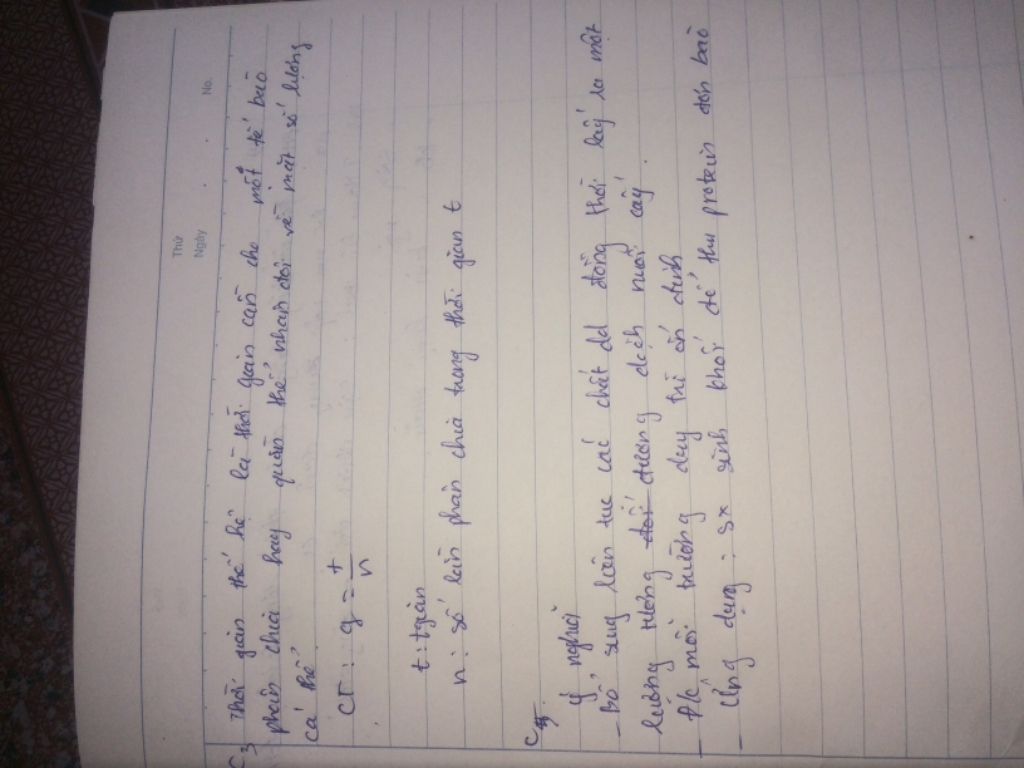 Thứ
Ngày
No.
C3 Thời gian thế hệ là thời gian cần cho một tế bào
phân chia hay quần thể nhân đôi về mặt số lượng
cá thể
CT: g = t/n
t: tgian
n: số lần phân chia trong thời gian t
C5
Ý nghĩa
- Bổ sung liên tục các chất dd đồng thời lấy ra một
lượng tương đối đương dịch nuôi cấy.
- Đ/c môi trường duy trì ổn định
- Ứng dụng: sx sinh khối để thu protein đơn bào